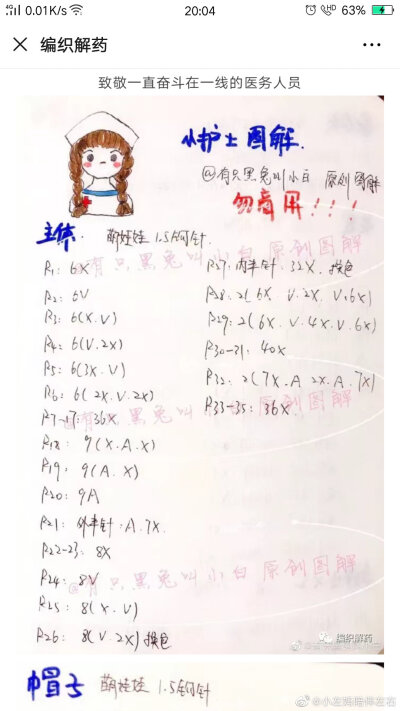 4G 0.01K/s 20:04 HD 63%
× 编织解药 ...
致敬一直奋斗在一线的医务人员
小护士图解.
@有只黑兔叫小白 原创图解
勿商用!!!
主体: 萌娃娃 1.5钩针.
R1: 6X
R2: 6V
R3: 6(X.V)
R4: 6(V.2X)
R5: 6(3X.V)
R6: 6(2X.V.2X)
R7-17: 36X
R18: 9(X.A.X)
R19: 9(A.X)
R20: 9A
R21: 外半针: A.7X.
R22-23: 8X
R24: 8V
R25: 8(X.V)
R26: 8(V.2X) 换色
R27: 内半针: 32X. 换色
R28: 2(6X.V.2X.V.6X)
R29: 2(6X.V.4X.V.6X)
R30-31: 40X
R32: 2(7X.A 2X.A.7X)
R33-35: 36X
有只黑兔叫小白 原创图解
@有只黑兔叫小白 原创图解
@有只黑兔叫小白 原创图解
编织解药
帽子 萌娃娃 1.5钩针